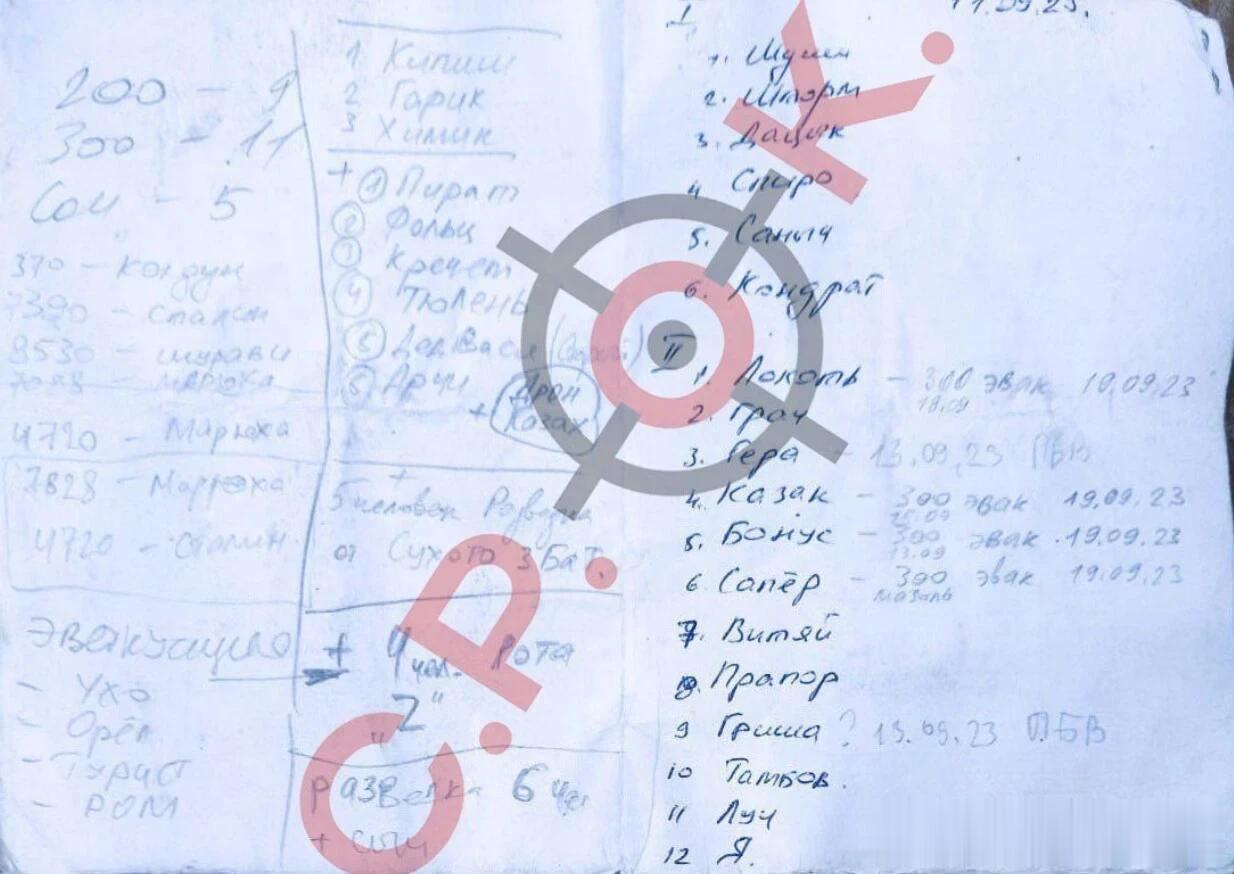 200 – 9
300 – 11
370 – Колдун
7390 –
8530 – шурави
4720 – Марюха
7828 – Марюха
4720 – Сталин
– Ухо
– Орёл
– Турист
– РОМ
1 Кипиш
2 Гарик
3 Химик
+ 1 Пират
2 Фольц
3 Кречет
4 Тюлень
Дед Вася
Дрон
+ Казах
+
5 человек
от Сухого 3 Бат.
+ 4 чел. Рота
„Z"
разведка 6 чел
I 11.09.23.
2. Шторм
3. Дацык
4 Спиро
5. Саныч
6. Кондрат
II
1. Локоть – 300 эвак 19.09.23
18.09
2. Грач
3. Гера – 13.09.23 ПБВ
4. Казак – 300 эвак 19.09.23
5. Бонус – 300 эвак 19.09.23
13.09
6 Сапёр – 300 эвак 19.09.23
7. Витяй
8. Прапор
9 Гриша ? 13.09.23 ПБВ
10 Тамбов.
11 Луч
12 Я.
С.Р.О.К.